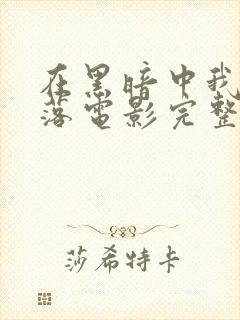 在黑暗中我
落电影完整
莎希特卡